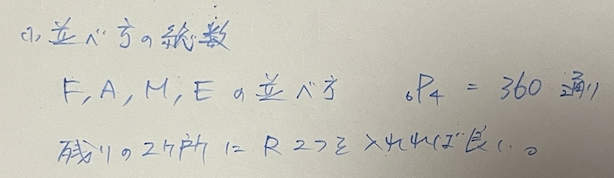 (1) 並べ方の総数
F, A, M, E の並べ方 ₆P₄ = 360 通り
残りの2ヶ所に R 2つを入れれば良い。